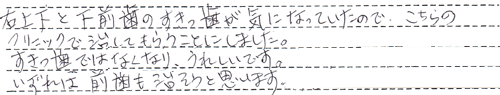 右上下と下前歯のすきっ歯が気になっていたので、こちらの
クリニックで治してもらうことにしました。
すきっ歯ではなくなり、うれしいです。
いずれは前歯も治そうと思います。